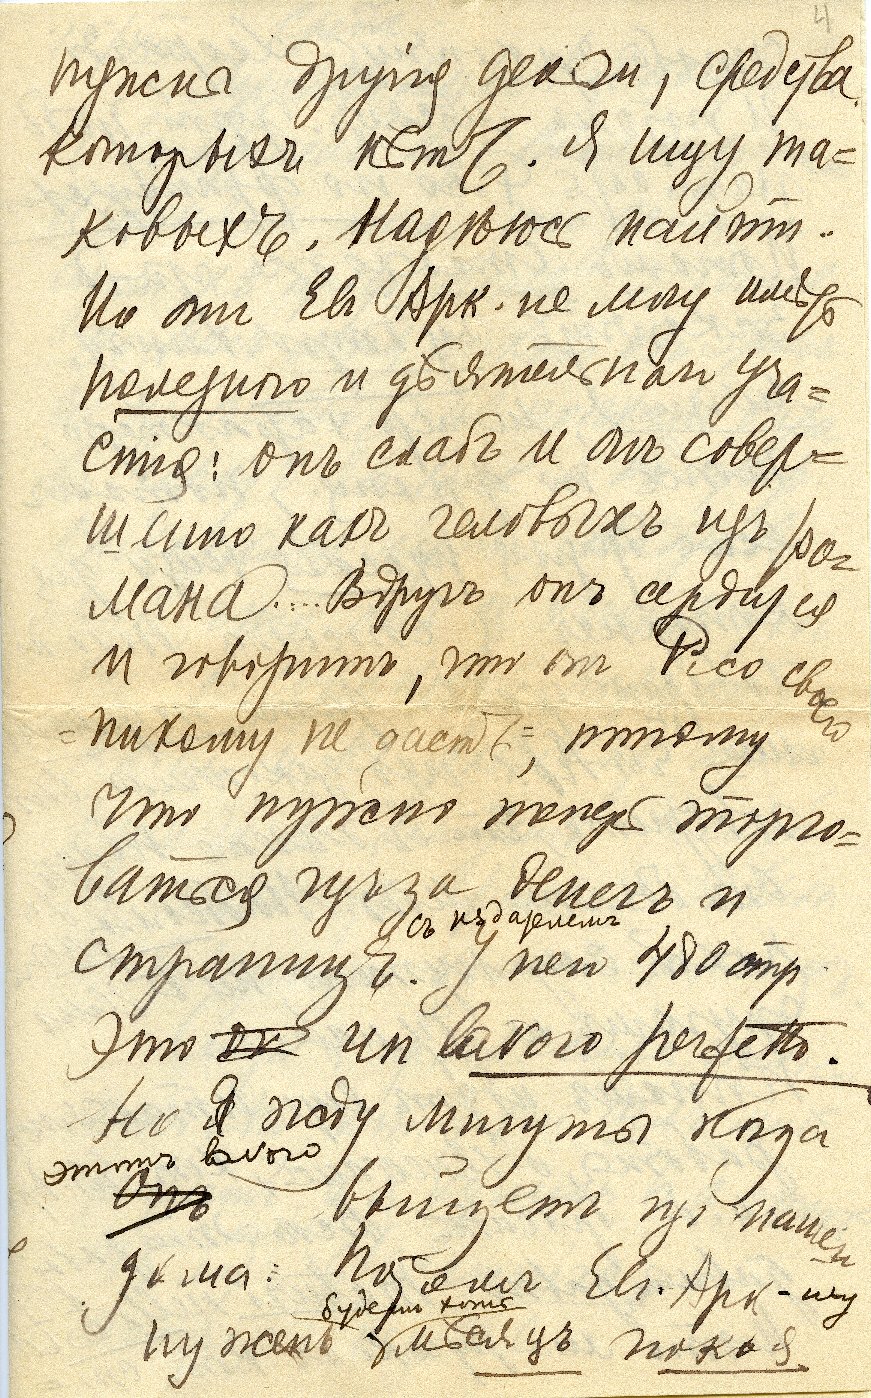 4
нужны другiя деньги, средства
которыхъ нѣтъ. Я ищу та=
ковыхъ. Надѣюсь найти.
Но отъ Ев Арк. не могу имѣть
полезного и дѣятельнаго уча=
стiя: онъ слабъ и онъ совер=
шенно какъ человѣкъ изъ ро=
мана.... Вдругъ онъ сердится
и говоритъ, что онъ своего
=никому не дастъ=, потому
что нужно теперь торго=
ваться изъ за денегъ и
съ издателемъ
страницъ. У него 480 стр
Это un perfetto.
Но я жду минуты когда
этотъ
Онъ выйдетъ изъ нашего
дома: Ев. Арк-чу
будетъ хотя
нуженъ мѣсяцъ покоя